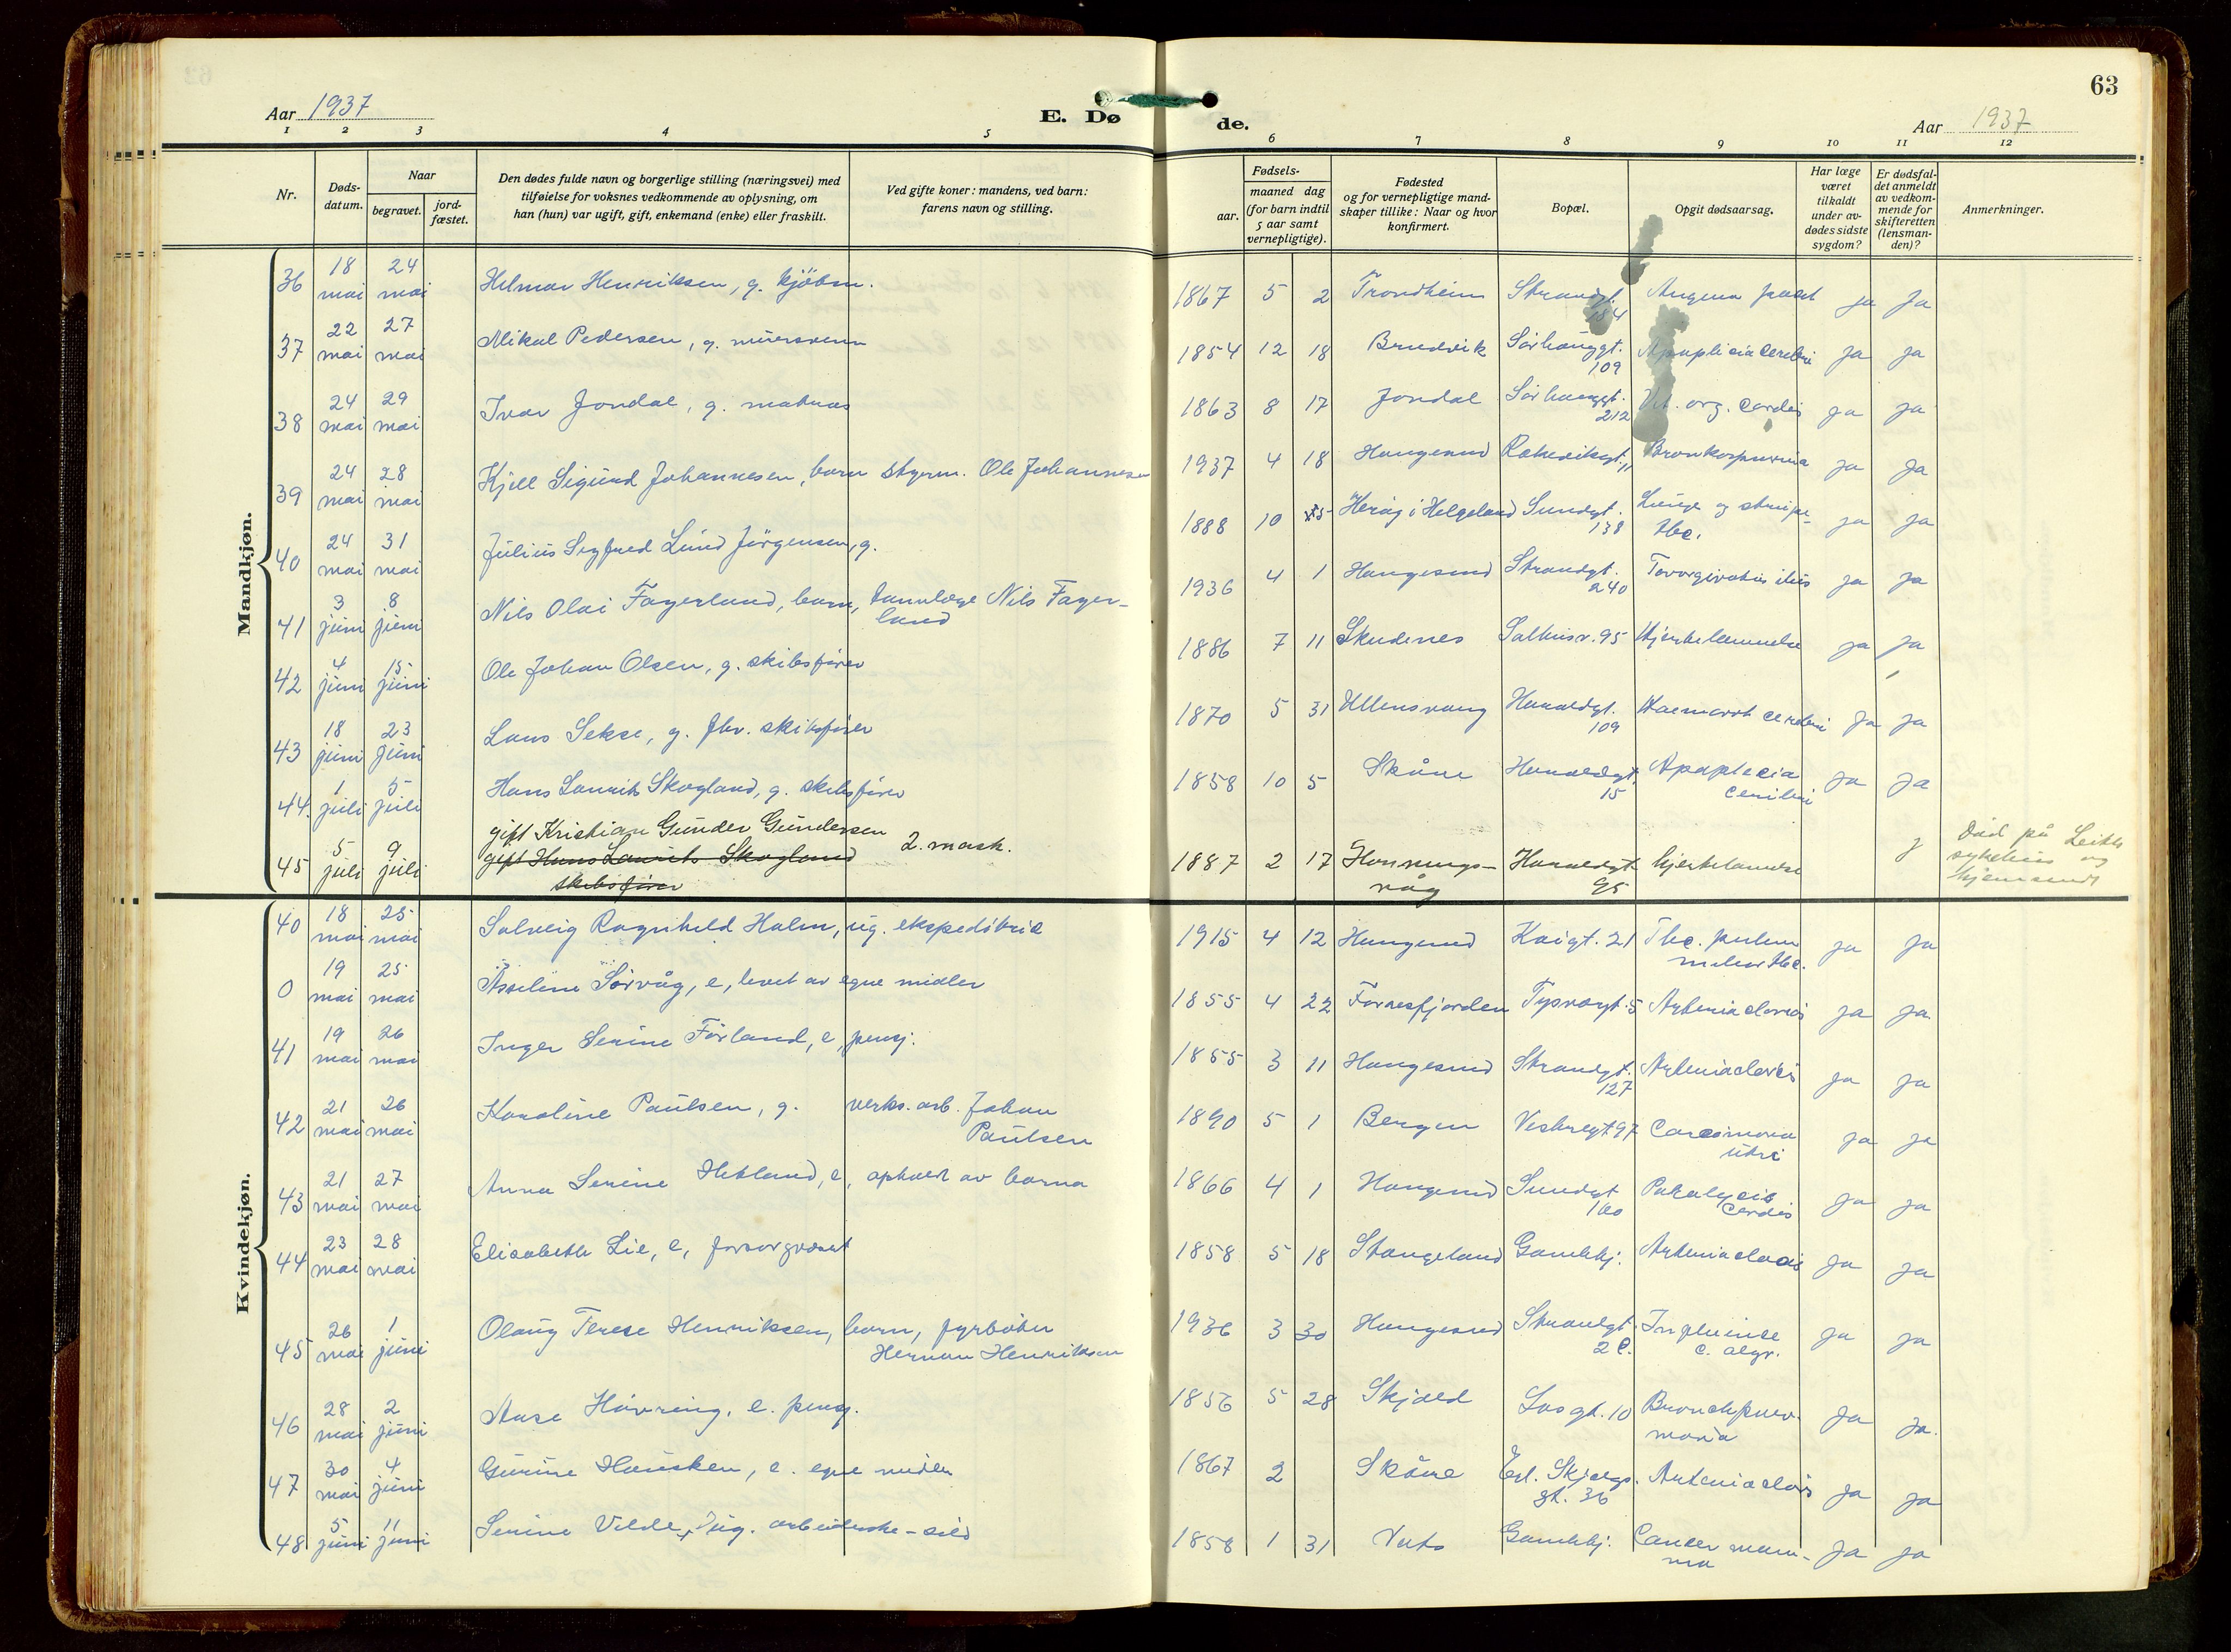 63
Aar 1937
E. Døde.
Aar 1937
1 2 3 4 5 6 7 8 9 10 11 12
Nr.
Døds-datum.
Naar
begravet.
jord-fæstet.
Den dødes fulde navn og borgerlige stilling (næringsvei) med
tilføielse for voksnes vedkommende av oplysning, om
han (hun) var ugift, gift, enkemand (enke) eller fraskilt.
Ved gifte koner: mandens, ved barn:
farens navn og stilling.
Fødsels-
aar.
maaned dag
(for barn indtil
5 aar samt
vernepligtige).
Fødested
og for vernepligtige mand-
skaper tillike: Naar og hvor
konfirmert.
Bopæl.
Opgit dødsaarsag.
Har læge
været
tilkaldt
under av-
dødes sidste
sygdom?
Er dødsfal-
det anmeldt
av vedkom-
mende for
skifteretten
(lensman-
den)?
Anmerkninger.
Mandkjøn.
36 18 mai 24 mai Helmar Henriksen, g. kjøbm. 1867 5 2 Trondheim Strandgt. 184 Angina ja Ja
37 22 mai 27 mai Mikal Pedersen, g. murersvenn 1854 12 18 Bruvik Sørhauggt. 109 Apoplexia cerebri ja ja
38 24 mai 29 mai Ivar Jondal, g. matros 1863 8 17 Jondal Sørhauggt. 212 Vit. org. cordis ja ja
39 24 mai 28 mai Kjell Sigurd Johannesen, barn styrm. Ole Johannesen 1937 4 18 Haugesund 11 Bronkopneumonia ja ja
40 24 mai 31 mai Julius Sigfred Lund Jørgensen, g. 1888 10 Herøy i Helgeland Sundgt. 138 Lunge og strupe-tbc. ja ja
41 3 juni 8 juni Nils Olai Fagerland, barn, tannlæge Nils Fagerland 1936 4 1 Haugesund Strandgt. 240 ja ja
42 4 juni 15 juni Ole Johan Olsen, g. skibsfører 1886 7 11 Skudenes Salhusv. 95 Hjertelammelse ja ja
43 18 juni 23 juni Lars Sekse, g. fhv. skibsfører 1870 5 31 Ullensvang Haraldgt. 109 Haemorrh cerebri ja ja
44. 1 juli 5 juli Hans Laurits Skogland, g. skibsfører 1858 10 5 Skåre Haraldgt. 15 Apoplexia cerebri ja ja
45 5 juli 9 juli gift Kristian Gunder Gundersen 2. mask.
gift Hans Laurits Skogland
skibsfører
1887 2 17 Honningsvåg Haraldgt 95 hjertelammelse J Død på
sykehus og
hjemsendt
Kvindekjøn.
40 18 mai 25 mai Solveig Ragnhild Holm, ug. ekspeditrice 1915 4 12 Haugesund Kaigt. 21 Tbc. pulm miliar tbc. ja ja
0 19 mai 25 mai Asseline Sørvåg, e, levet av egne midler 1855 4 22 Førresfjorden Tysvægt. 5 Arteriosclerosis ja ja
41 19 mai 26 mai Inger Serine Førland, e, pensj. 1855 3 11 Haugesund Strandgt. 127 Arteriosclerosis ja ja
42 21 mai 26 mai Karoline Paulsen, g. verks. arb. Johan Paulsen 1890 5 1 Bergen Vestregt 97 Carcinoma uteri ja ja
43 21 mai 27 mai Anna Serine Hetland, e, ophold av barna 1866 4 1 Haugesund Sundgt 160 Paralysis cordis ja ja
44 23 mai 28 mai Elisabeth Lie, e, forsorgvesent 1858 5 18 Stangeland Gamlehj. Arteriosclerosis ja ja
45 26 mai 1 juni Olaug Terese Henriksen, barn, fyrbøter Herman Henriksen 1936 3 30 Haugesund Strandgt. 2 C. Influense ja ja
46 28 mai 2 juni Anse Håvring, e. pensj. 1856 5 28 Skjold Losgt. 10 Bronchpneumonia ja ja.
47 30 mai 4 juni Gurine Hausken, e. egne midler 1867 2 Skåre Erl. Skjalgs. gt. 36 Arteriosclerosis ja ja
48 5 juni 11 juni Serine Velde, ug. arbeiderske-sild 1858 1 31 Vats Gamlehj. Cancer mamma ja ja